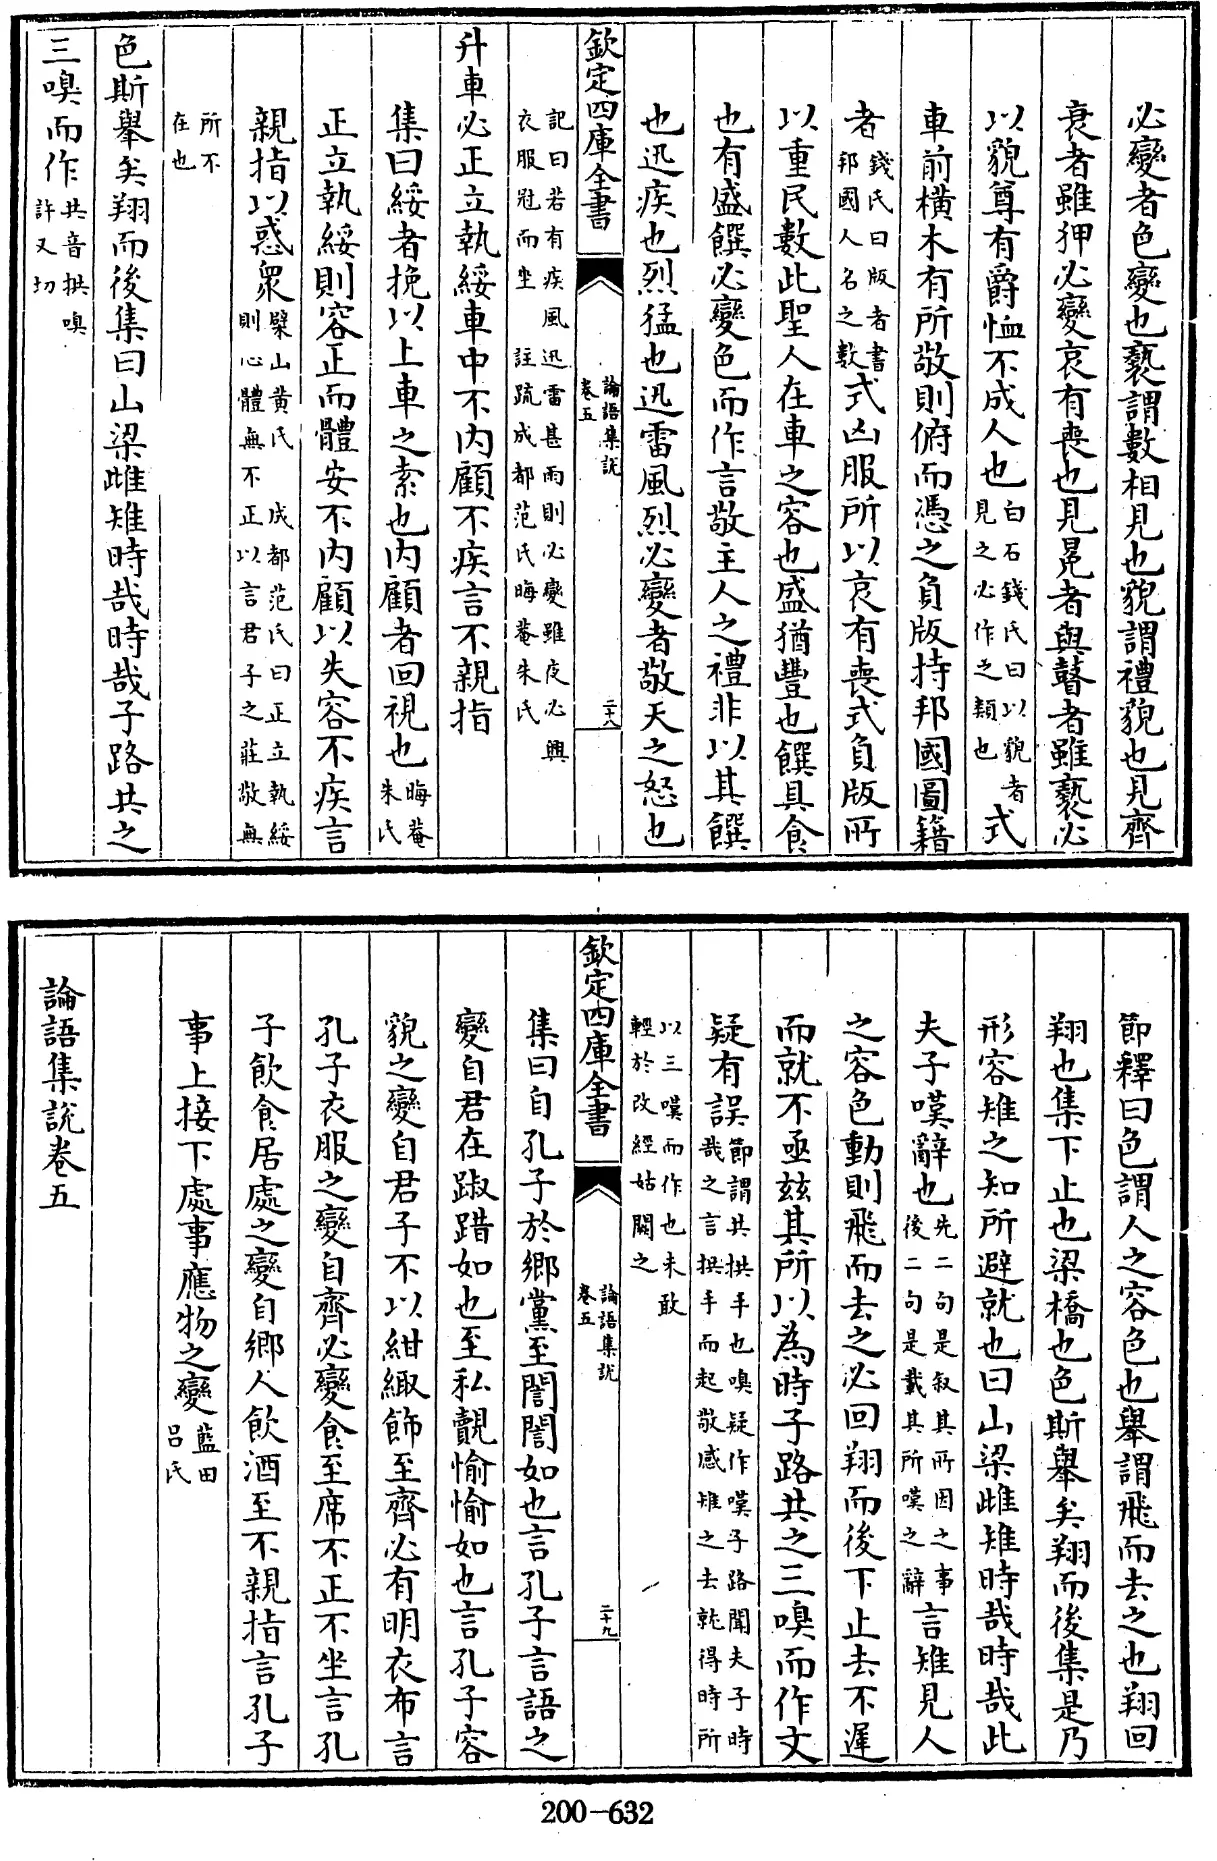 必變者色變也褻謂數相見也貌謂禮貌也見齊
衰者雖狎必變哀有喪也見冕者與瞽者雖褻必
以貌尊有爵恤不成人也白石錢氏曰以貌者見之必作之類也式
車前橫木有所敬則俯而憑之負版持邦國圖籍
者錢氏曰版者書邦國人名之數式凶服所以哀有喪式負版所
以重民數此聖人在車之容也盛猶豐也饌具食
也有盛饌必變色而作言敬主人之禮非以其饌
也迅疾也烈猛也迅雷風烈必變者敬天之怒也
記曰若有疾風迅雷甚雨則必變雖夜必興衣服冠而坐 註疏成都范氏晦菴朱氏
欽定四庫全書
論語集說
卷五
二十八
升車必正立執綏車中不內顧不疾言不親指
集曰綏者挽以上車之索也內顧者回視也晦菴朱氏
正立執綏則容正而體安不內顧以失容不疾言
親指以惑衆檗山黃氏 成都范氏曰正立執綏則心體無不正以言君子之莊敬無
所不在也
色斯舉矣翔而後集曰山梁雌雉時哉時哉子路共之
三嗅而作共音拱嗅許又切
節釋曰色謂人之容色也舉謂飛而去之也翔回
翔也集下止也梁橋也色斯舉矣翔而後集是乃
形容雉之知所避就也曰山梁雌雉時哉時哉此
夫子嘆辭也先二句是叙其所因之事後二句是載其所嘆之辭言雉見人
之容色動則飛而去之必回翔而後下止去不遲
而就不亟兹其所以為時子路共之三嗅而作文
疑有誤節謂共拱手也嗅疑作嘆子路聞夫子時哉之言拱手而起敬感雉之去就得時所
以三嘆而作也未敢輕於改經姑闕之
欽定四庫全書
論語集說
卷五
二十九
集曰自孔子於鄉黨至誾誾如也言孔子言語之
變自君在踧踖如也至私覿愉愉如也言孔子容
貌之變自君子不以紺緅飾至齊必有明衣布言
孔子衣服之變自齊必變食至席不正不坐言孔
子飲食居處之變自鄉人飲酒至不親指言孔子
事上接下處事應物之變藍田呂氏
論語集說卷五
200-632